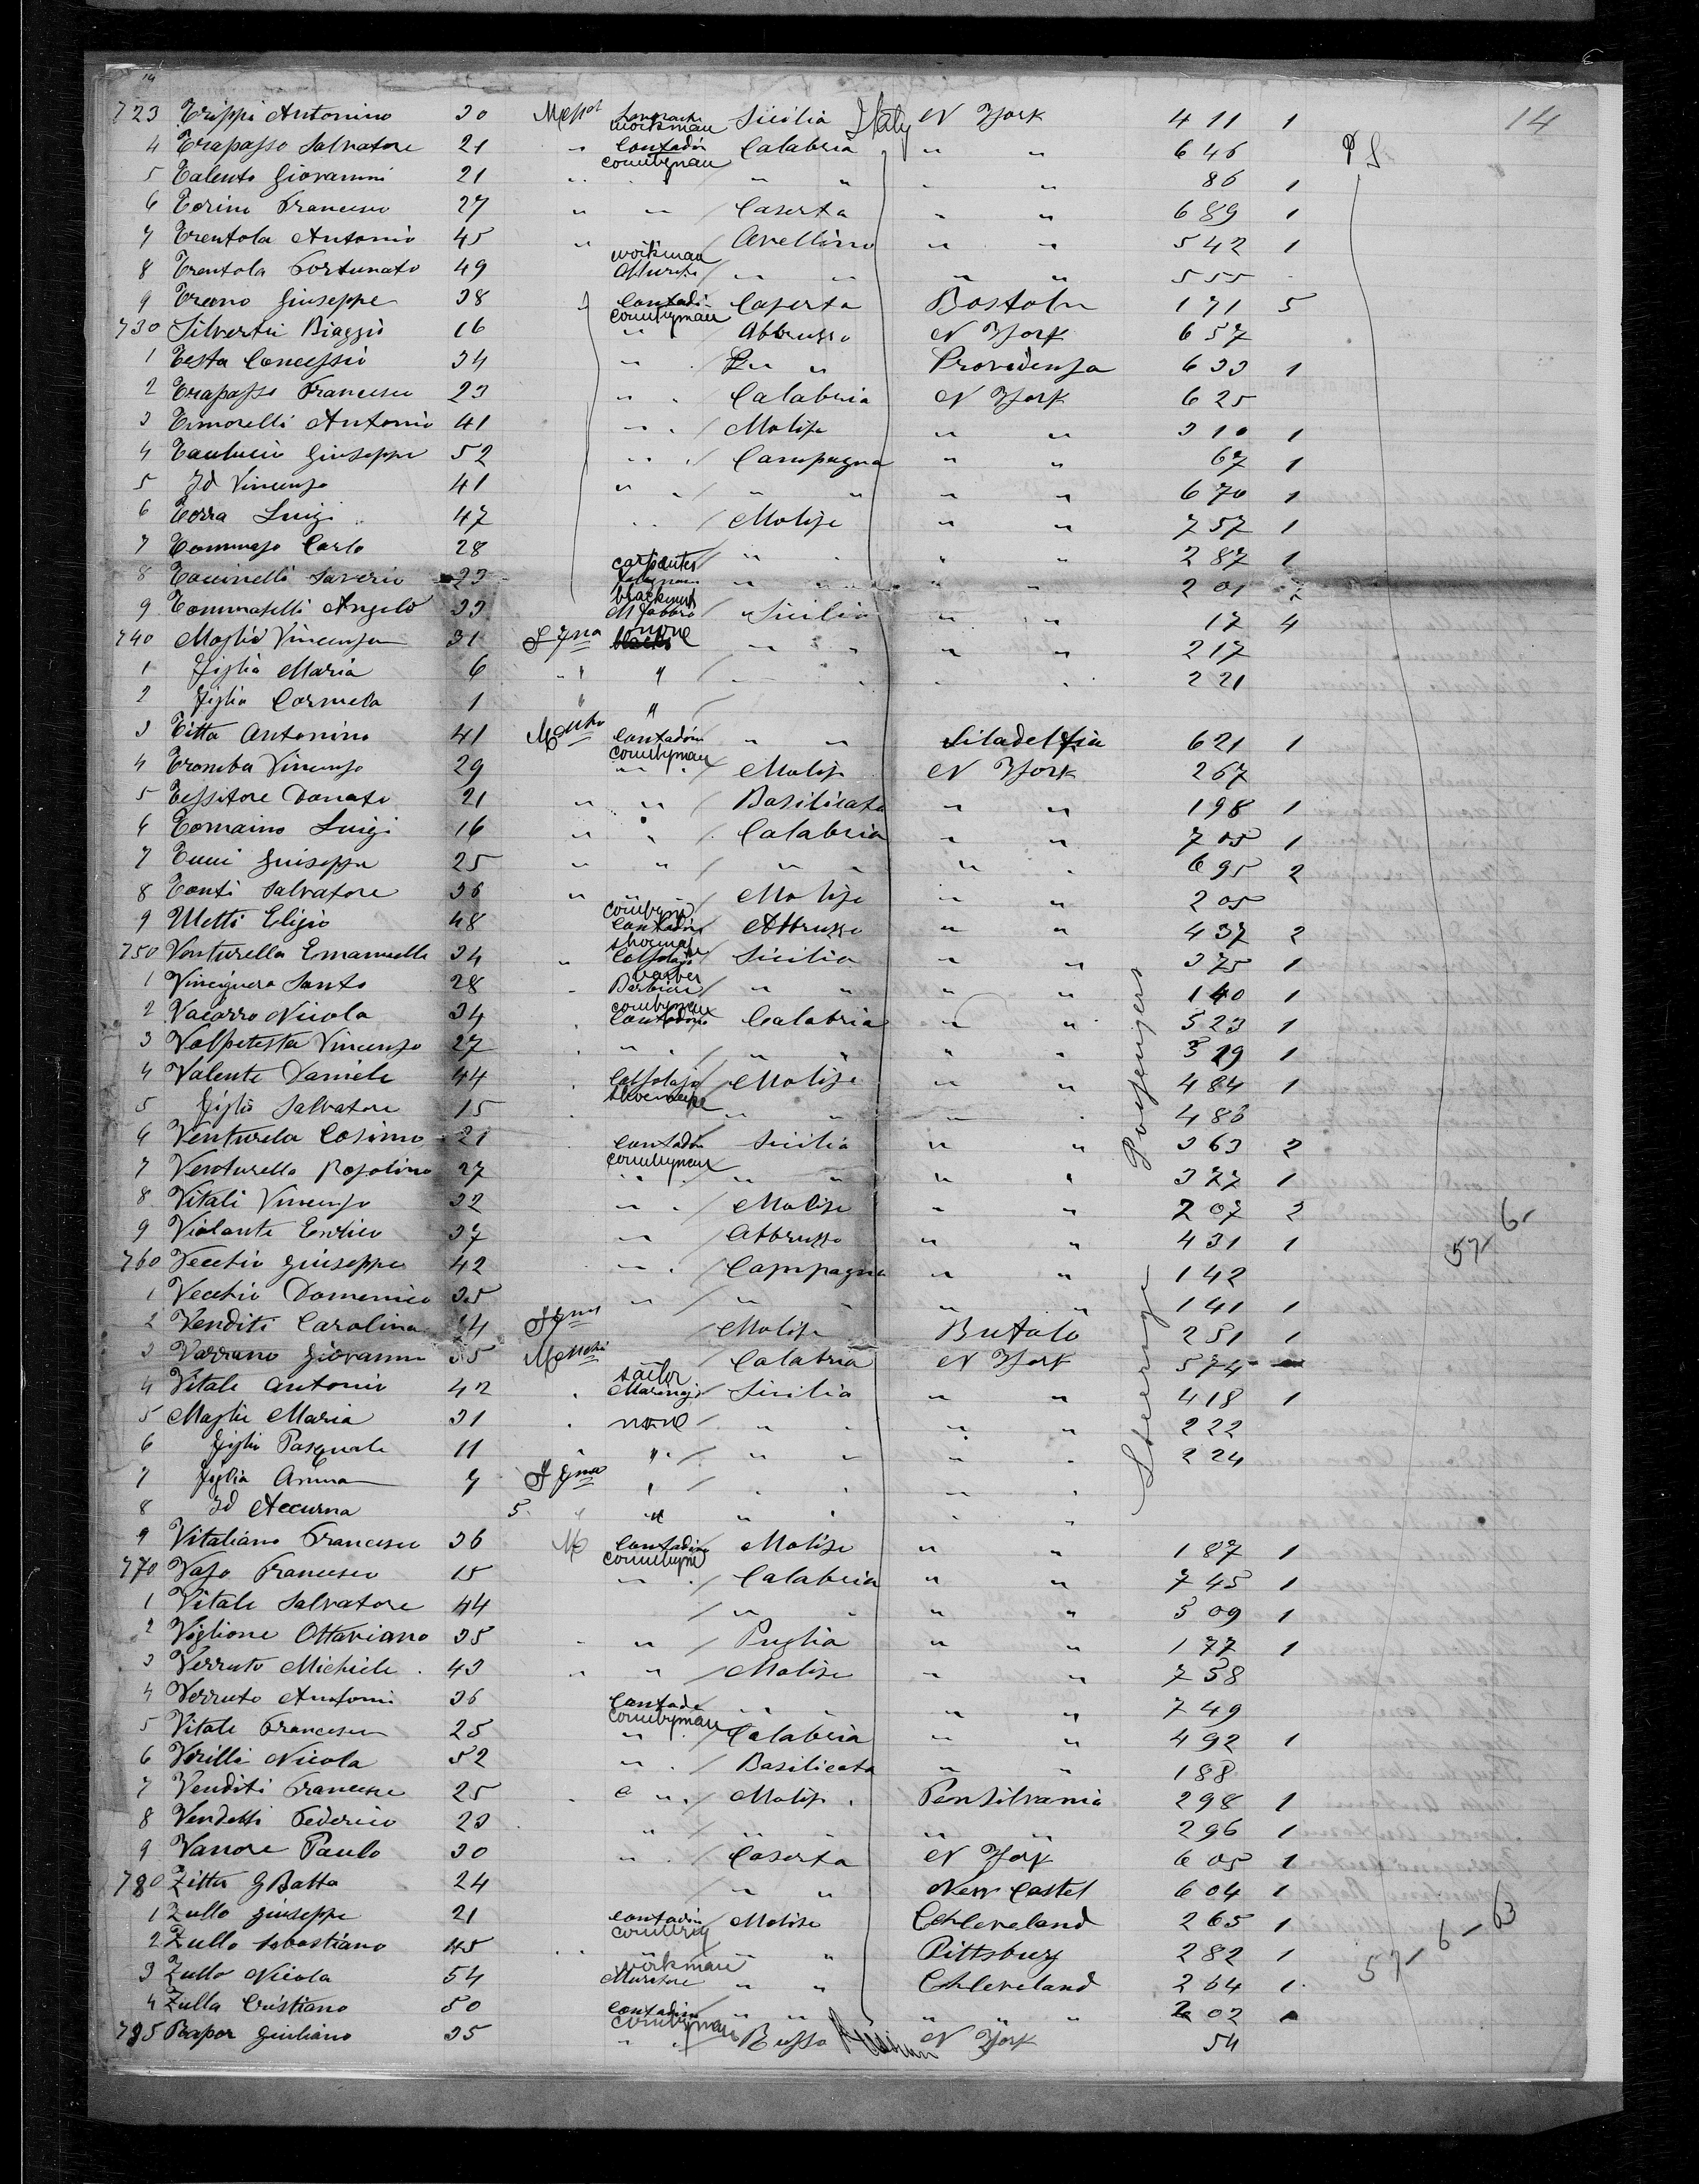 14
723 Trippi Antonino 30 workman Sicilia Italy N York 411 1
4 Trapasso Salvatore 21 " Contadin countryman Calabria " " 646
5 Talento Giovanni 21 " " " " " " 86 1
6 Torino Francesco 27 " " Caserta " " 689 1
7 Trentola Antonio 45 " Avellino " " 542 1
8 Trentola Fortunato 49 workman " " " " 555
9 Treano Giuseppe 38 Contadi countryman Caserta Bostoln 171 5
730 Silvertri Biaggio 16 " Abbruzzo N York 657
1 Testa Concessio 34 " " " Providensa 633 1
2 Trapasso Francesco 23 " " Calabria N York 625
3 Timorelli Antonio 41 " " Molise " " 310 1
4 Giuseppe 52 " " Campagna " " 67 1
5 Id Vincenzo 41 " " " " " " 670 1
6 Torra Luigi 47 " " Molise " " 757 1
7 Tommaso Carlo 28 " " " " 287 1
8 Saverio 23 carpenter " " " " 201 2
9 Tommaselli Angelo 33 M Fabbro " Sicilia " " 17 4
740 Moglie Vincenza 31 none " " " " 217
1 figlia Maria 6 " " " " " " 221
2 figlia Carmela 1 " "
3 Titta Antonino 41 Contadin countryman " " Filadelfia 621 1
4 Tromba Vincenzo 29 " " Molise N York 267
5 Tessitore Donato 21 " " Basilicata " " 198 1
6 Tomaino Luigi 16 " " Calabria " " 705 1
7 Tucci Giuseppe 25 " " " " " " 695 2
8 Tonti Salvatore 36 " " " Molise " " 205
9 Uletti Eligio 48 Contadin Abbruzzo " " 437 2
750 Venturella Emanuelle 34 " Sicilia " " 375 1
1 Vinciguera Santo 28 barber Barbiere " " " " 140 1
2 Vacarro Nicola 34 countryman Contadino Calabria " " 523 1
3 Volpetesta Vincenzo 27 " " " " " " 319 1
4 Valente Daniele 44 Calsolajo Molise " " 484 1
5 figlio Salvatore 15 " " " " 486
6 Venturela Cosimo 21 Contadin Sicilia " " 363 2
7 Venturella Rosolino 27 countryman " " " " 377 1
8 Vitali Vincenzo 32 " " Molise " " 207 3
9 Violante Enrico 37 " Abbruzzo " " 431 1
760 Vecchio Giuseppe 42 " " Campagna " " 142
1 Vecchio Domenico 35 " " " " " 141 1
2 Venditi Carolina 24 Molise Bufalo 251 1
3 Varrano Giovanni 35 Calabria N York 574
4 Vitale Antonio 42 sailor Sicilia " " 418 1
5 Moglie Maria 31 none " " " " 222
6 figlio Pasquale 11 " " " " " " 224
7 figlia Anna 7 " " " " "
8 Id Accurna 5 " " " " " "
9 Vitaliano Francesco 36 M Contadin Molise " " 187 1
770 Vaso Francesco 15 " " Calabria " " 745 1
1 Vitale Salvatore 44 " " " " 509 1
2 Viglione Ottaviano 35 " " Puglia " " 177 1
3 Verruto Michiele 43 " " Molise " " 758
4 Verruto Antonio 36 Contade " " " " 749
5 Vitale Francesco 25 countryman " Calabria " " 492 1
6 Virilli Nicola 52 " " Basilicata " " 188
7 Venditi Francesco 25 " " Molise Pensilvania 298 1
8 Vendetti Federico 23 " " " " " 296 1
9 Vanore Paulo 30 " " Caserta N York 605 1
780 Zitta G Batta 24 " " New Castel 604 1
1 Zullo Giuseppe 21 Contadin Molise Chleveland 265 1
2 Zullo Sebastiano 45 " " Pittsburg 282 1
3 Zullo Nicola 54 workman Muratore " " Chleveland 264 1
4 Zulla Cristiano 50 Contadin " " " " 202
785 Rapor Giuliano 35 countryman " " Russo Russian N York 54
14
Steerage Passengers
57 6
57 - 6 - 63